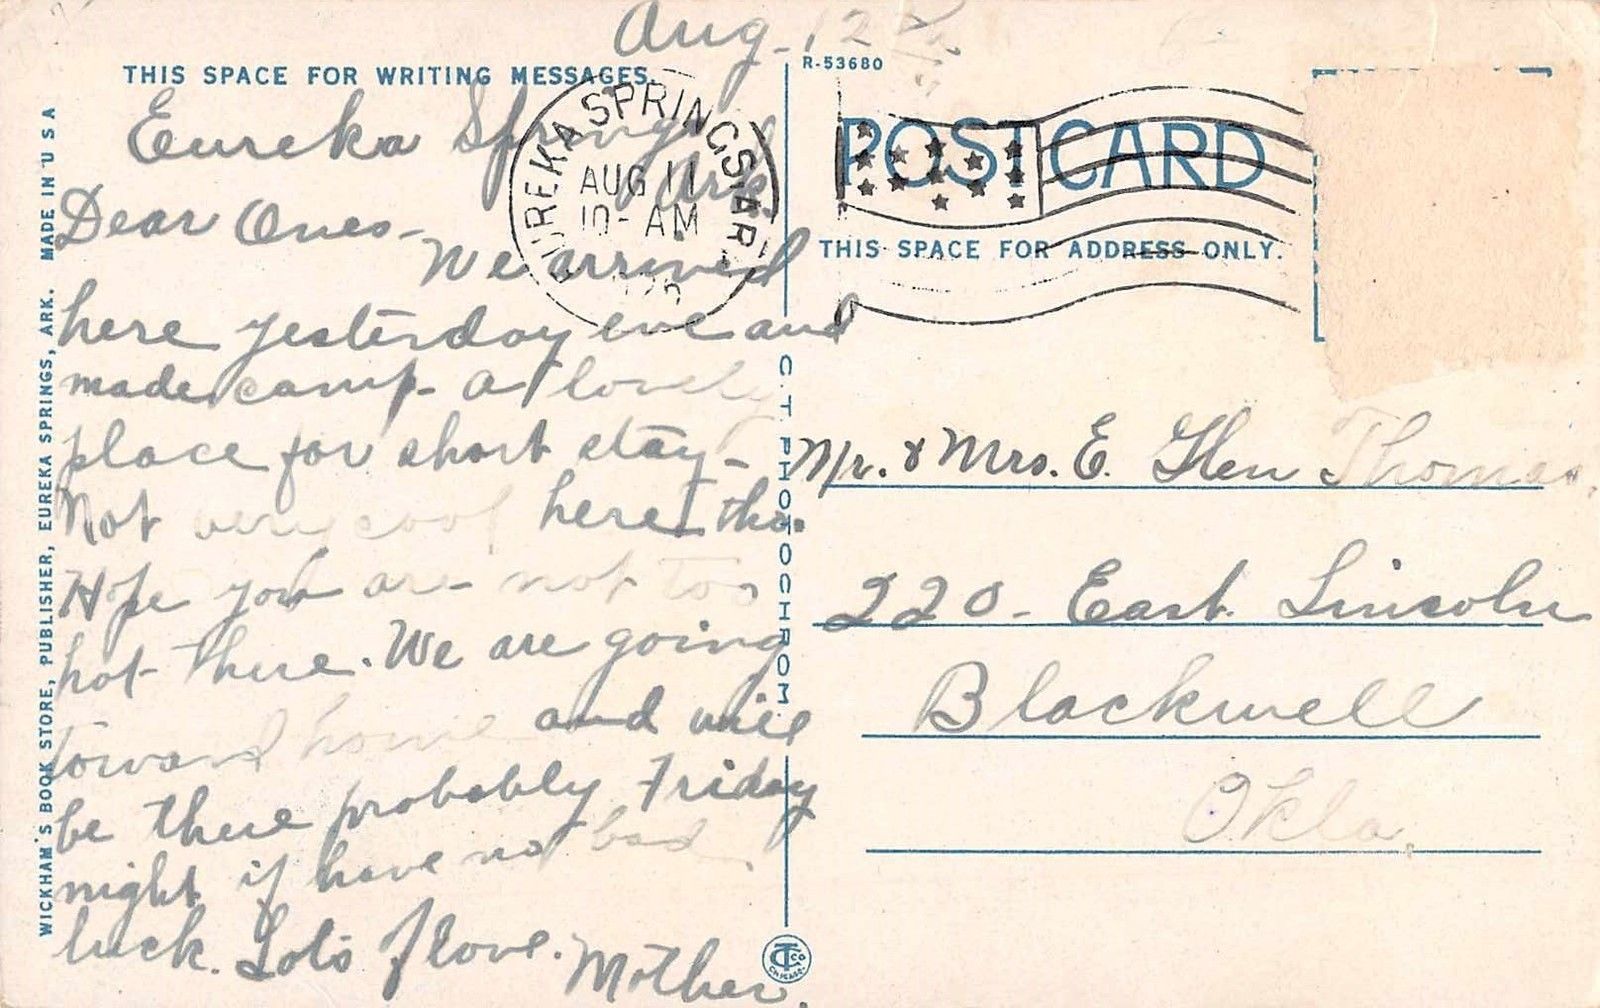 Aug. 12
THIS SPACE FOR WRITING MESSAGES.
Eureka Springs
Ark.
Dear Ones-
We arrived
here yesterday eve and
made camp- a lovely
place for short stay-
Not very cool here tho.
Hope you are not too
hot there. We are going
toward home and will
be there probably Friday
night if have no bad
luck. Lots of love. Mother.
EUREKA SPRINGS, ARK.
AUG 11
10- AM
WICKHAM'S BOOK STORE, PUBLISHER, EUREKA SPRINGS, ARK. MADE IN U S A
C. T. PHOTOCHROM
CT CO
CHICAGO.
R-53680
POST CARD
THIS SPACE FOR ADDRESS ONLY.
Mr. & Mrs. E. Glen Thomas.
220- East Lincoln
Blackwell
Okla.